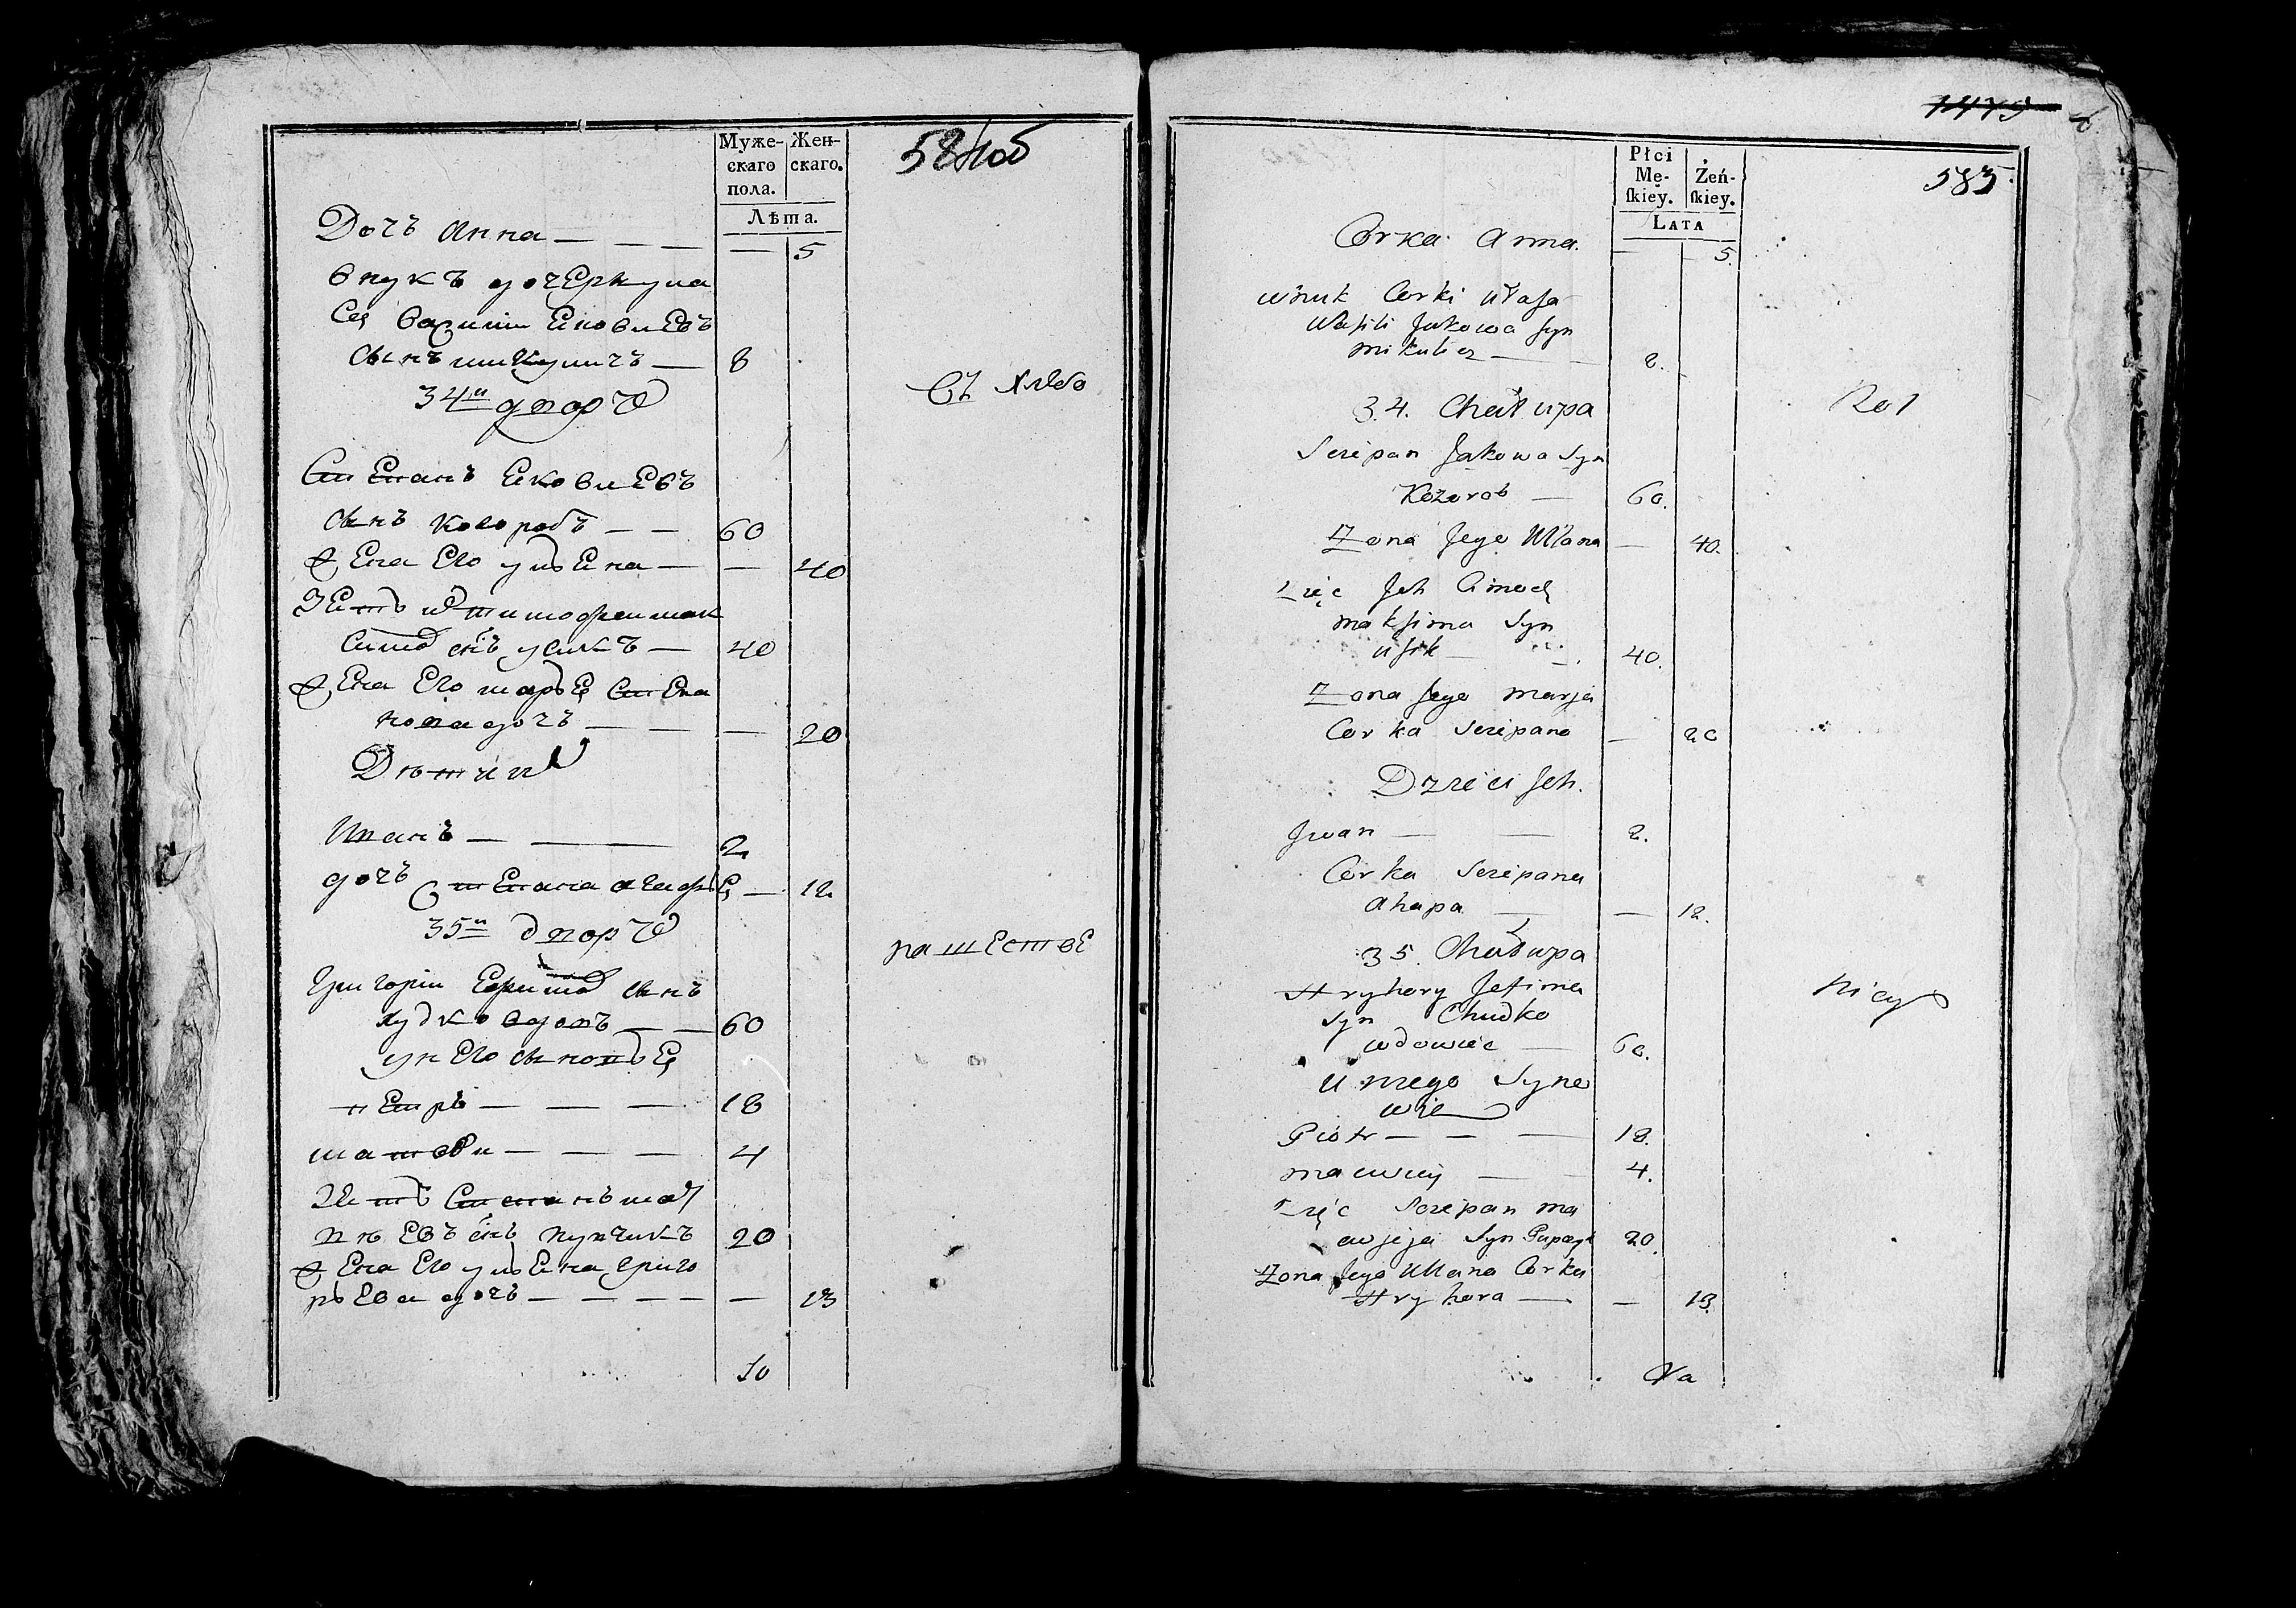 Муже-
скаго
пола.
Жен-
скаго.
Лѣта.
Дочъ Анна — — —
— 5
внукъ дочери
Василии Яковлевъ
сынъ микуличъ — 8
34й дворъ
Съ хлеба
Степанъ Яковлевъ
сынъ Козоробъ — — 60
жена Его ульяна — — 40
Зять ихъ тимофеи мак
сима снъ усикъ — 40
жена Его марья Степа
нова дочъ — — — 20
Дети ихъ
Иванъ — — 2
дочъ Степана агафья — 12
35й дворъ
на
Григории Ефима сынъ
худко вдовъ — — 60
у него сыновья
петръ — — — 18
матвеи — — — 4
Зять Степанъ мат
вѣевъ снъ 20
жена Его ульяна григо
рьева дочъ — — — — — 13
10
1475
585
Płci
Mę-
ſkiey.
Żeń-
ſkiey.
LATA
Corka Anna. — 5.
wnuk Corki
Wasili Jakowa Syn
Mikulicz — 8.
34. Chałupa
Rol
Scicpan Jakowa Syn
Kozorob — 60.
Zona Jego Ullana — 40.
Zięc Jch Cimoch
Maksima Syn
Usik — 40.
Zona Jego Marja
Corka Sciepana — 20
Dzieci Jch.
Jwan — — 2.
Corka Sciepana
Ahapa — — 12.
35. Chałupa
Hryhory Jefima
Syn Chudko
wdowiec — 60.
U niego Syno
wie
Piotr — — — 18.
Maciwiey — 4.
Zięc Sciepan Ma
cwjeja Syn 20.
Zona Jego Ullana Corka
Hryhora — — 13.